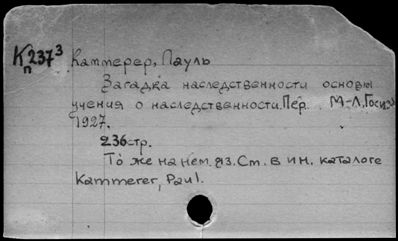 К п 237³ Каммерер, Пауль
Загадка наследственности основы
учения о наследственности. Пер. М-Л, Госиз
1927.
236стр.
То же на нем. яз. См. в ин. каталоге
Kammerer, Paul.